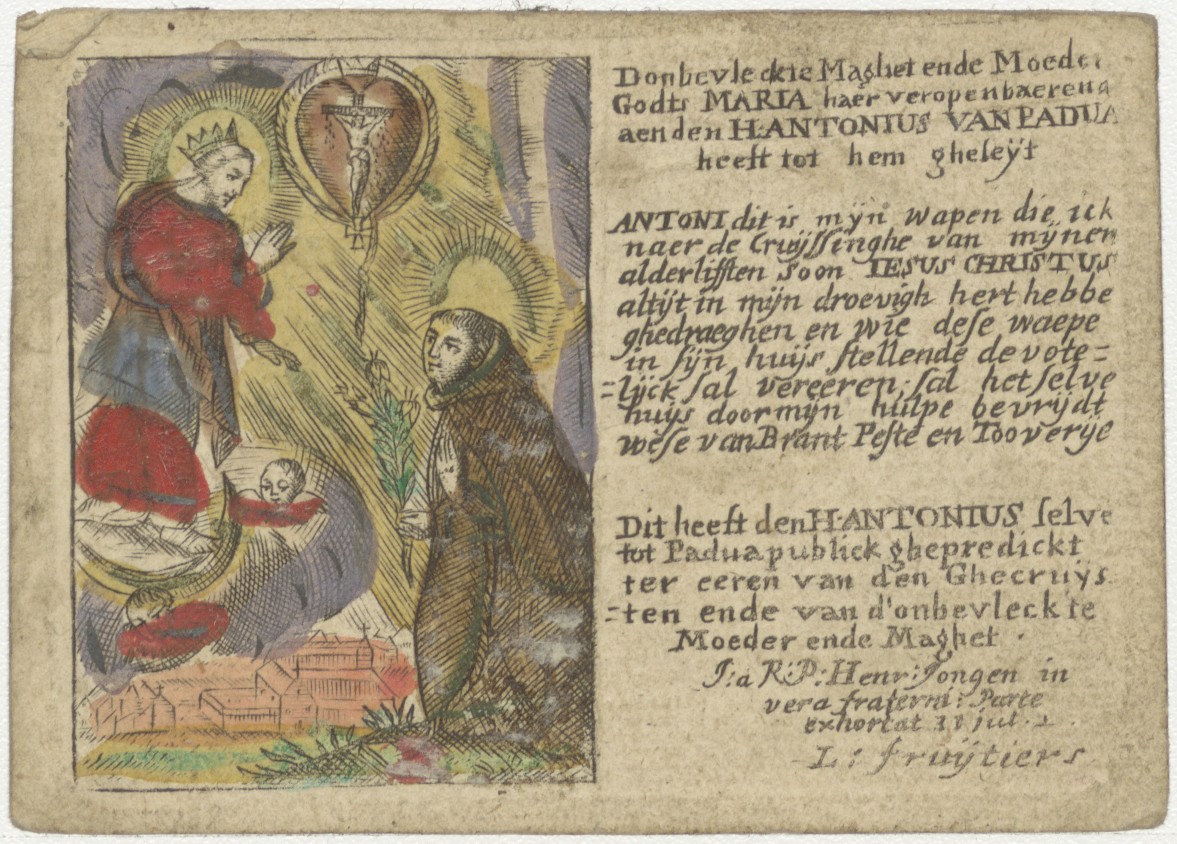 Donbevleckte Maghet ende Moeder
Godts MARIA haer veropenbaerena
aen den H.ANTONIUS VAN PADUA
heeft tot hem gheleÿt
ANTONI dit is mÿn wapen die ick
naer de Cruÿssinghe van mÿnen
alderlifsten soon IESUS CHRISTUS
altÿt in mÿn droevigh hert hebbe
ghedraeghen en wie dese waepe
in sÿn huÿs stellende devote=
=lÿck sal vereeren, sal het selve
huÿs door mÿn hulpe bevrÿdt
wese van Brant Peste en Tooverÿe
Dit heeft den H.ANTONIUS selve
tot Padua publick ghepredickt
ter eeren van den Ghecruÿs
=ten ende van d'onbevleckte
Moeder ende Maghet .
J: a R:P: Henr: Jongen in
vera fraterni: Parte
exhortat 31 jul.
L: fruÿtiers